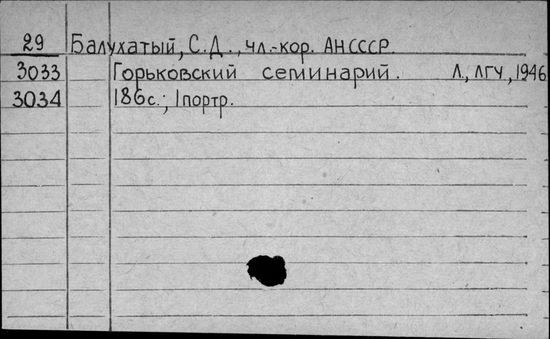 29 Балухатый, С.Д., чл.-кор. АНСССР.
3033 Горьковский семинарий. Л, ЛГУ, 1946
3034 186с.; 1портр.